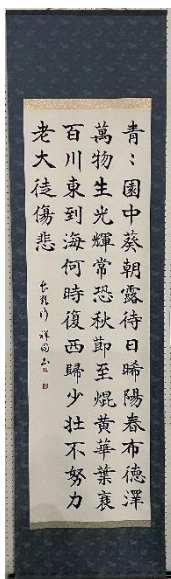 青〻園中葵朝露待日晞陽春布德澤
萬物生光輝常恐秋節至焜黃華葉衰
百川東到海何時復西歸少壯不努力
老大徒傷悲
長歌行